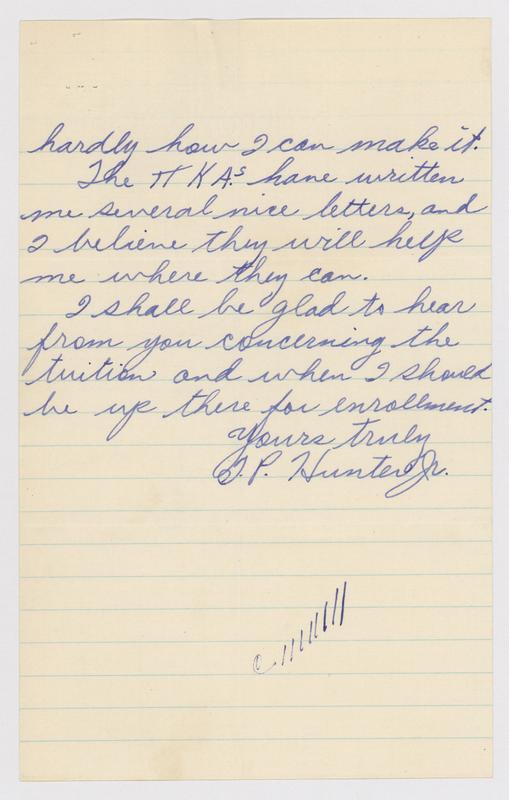 hardly how I can make it.
The π K A's have written
me several nice letters, and
I believe they will help
me where they can.
I shall be glad to hear
from you concerning the
tuition and when I should
be up there for enrollment.
Yours truly
T. P. Hunter Jr.